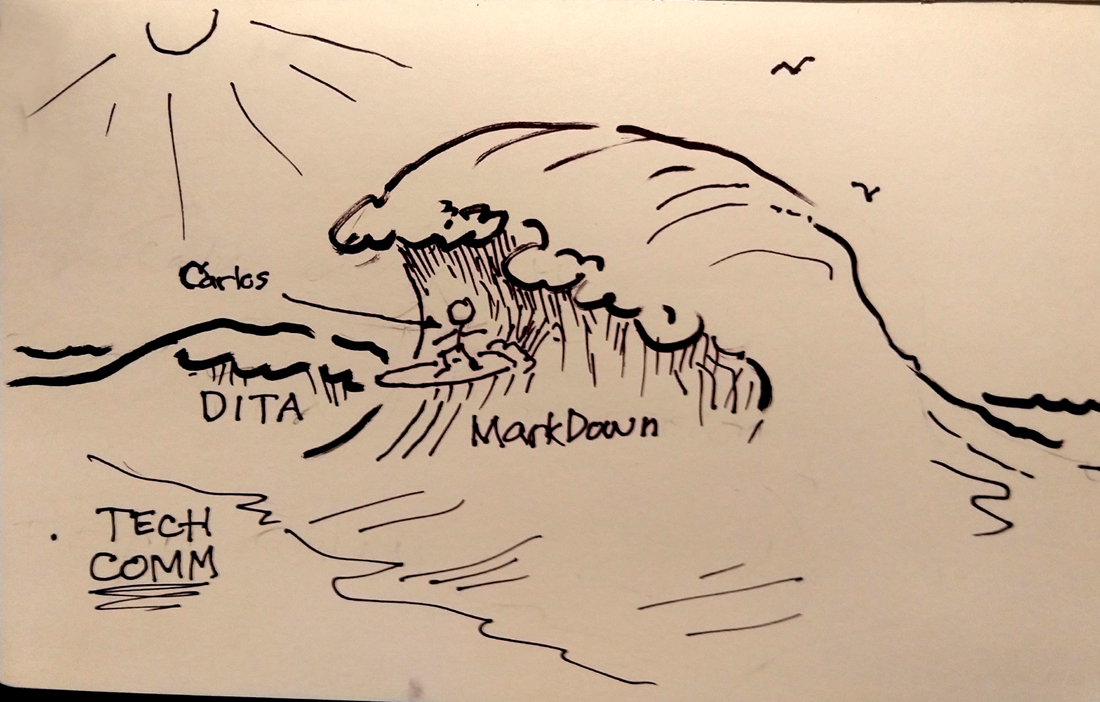 Carlos
DITA
MarkDown
TECH
COMM